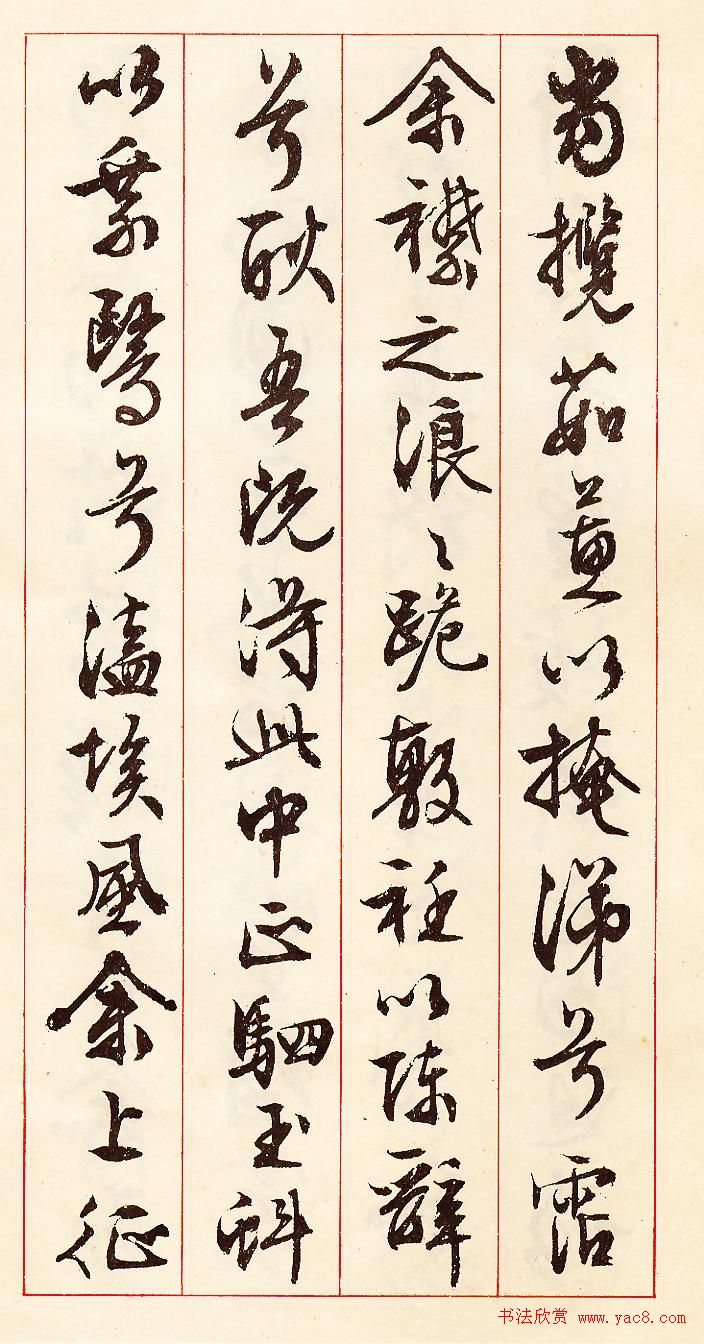 當攬茹蕙以掩涕兮霑
余襟之浪〻跪敷衽以陳辭
兮耿吾既得此中正駟玉虯
以乘鷖兮溘埃風余上征
书法欣赏 www.yac8.com